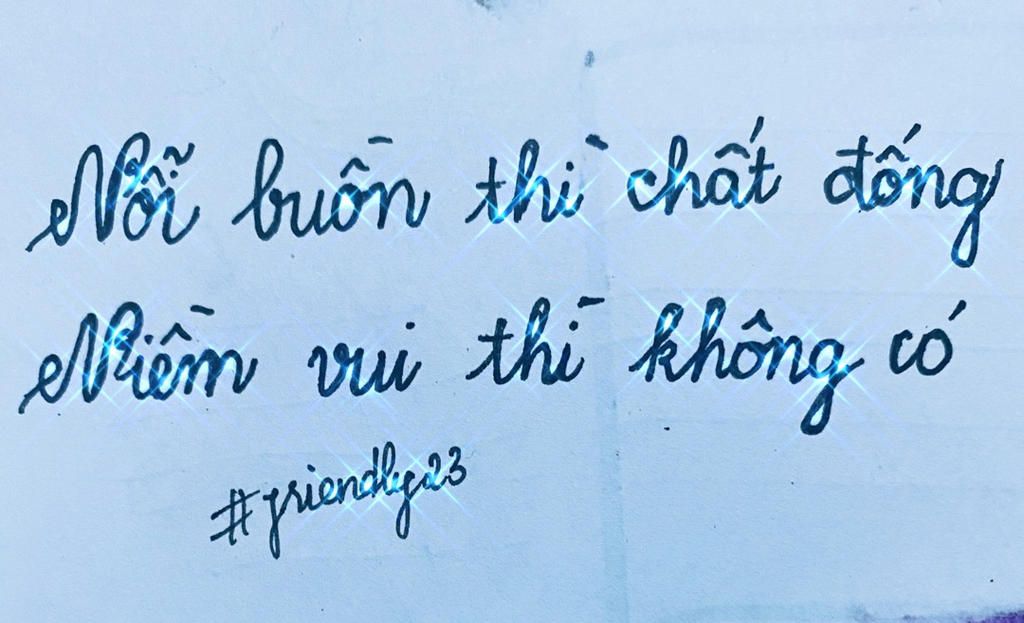 Nỗi buồn thì chất đống
Niềm vui thì không có
#friendly23